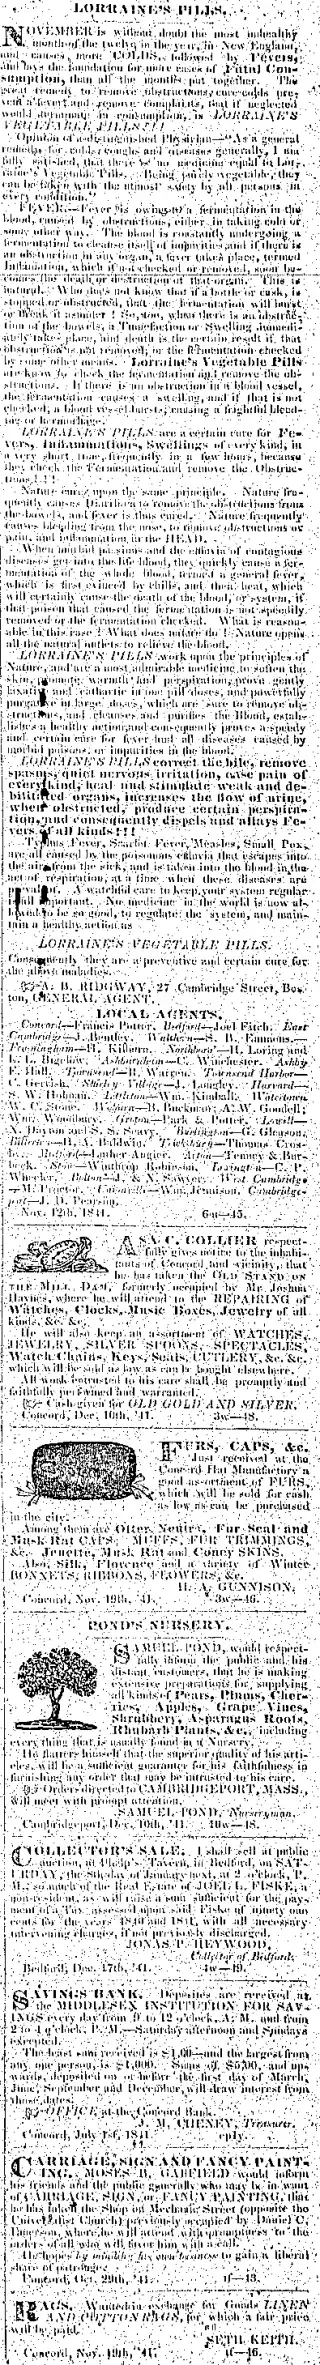 LORRAINE'S PILLS.
NOVEMBER is without doubt the most unhealthy
month of the twelve in the year, in New England,
and causes more COLDS, followed by Fevers,
and lays the foundation for more cases of Fatal Con-
sumption, than all the months put together. The
great remedy to remove obstructions, cure colds, pre-
vent a fever, and remove complaints, that if neglected
would terminate in consumption, is LORRAINE'S
VEGETABLE PILLS!!!
Opinion of a distinguished Physician—"As a general
remedy for colds, coughs and diseases generally, I am
fully satisfied, that there is no medicine equal to Lor-
raine's Vegetable Pills. Being purely vegetable, they
can be taken with the utmost safety by all persons in
every condition."
FEVER.—Fever is owing to a fermentation in the
blood, caused by obstructions, either in taking cold or
some other way. The blood is constantly undergoing a
fermentation to cleanse itself of impurities, and if there is
an obstruction in any organ, a fever takes place, termed
Inflammation, which if not checked or removed, soon be-
comes the death or destruction of that organ. This is
natural. Who does not know that if a bottle or cask, is
stopped or obstructed, that the fermentation will burst
or break it asunder! So, too, when there is an obstruc-
tion of the bowels, a Tumefaction or Swelling immedi-
ately takes place, and death is the certain result if that
obstruction is not removed, or the fermentation checked
by some other means. Lorraine's Vegetable Pills
are known to check the fermentation and remove the ob-
structions. If there is an obstruction in a blood vessel,
the fermentation causes a swelling, and if that is not
checked, a blood vessel bursts, causing a frightful bleed-
ing or hemorrhage.
LORRAINE'S PILLS are a certain cure for Fe-
vers, Inflammations, Swellings of every kind, in
a very short time, frequently in a few hours, because
they check the Fermentation and remove the Obstruc-
tions!!!
Nature cures upon the same principle. Nature fre-
quently causes Diarrhœa to remove the obstructions from
the bowels, and fever is thus cured. Nature frequently
causes bleeding from the nose, to remove obstructions or
pain, and inflammation, in the HEAD.
When morbid passions and the effluvia of contagious
diseases get into the life blood, they quickly cause a fer-
mentation of the whole blood, termed a general fever,
which is first evinced by chills, and then heat, which
will certainly cause the death of the blood, or system, if
that poison that caused the fermentation is not speedily
removed or the fermentation checked. What is reason-
able in this case? What does nature do? Nature opens
all the natural outlets to relieve the blood.
LORRAINE'S PILLS work upon the principles of
Nature, and are a most admirable medicine, to soften the
skin, promote warmth and perspiration, prove gently
laxative and cathartic in one pill doses, and powerfully
purgative in large doses, which are sure to remove ob-
structions, and cleanses and purifies the Blood, estab-
lishes a healthy action, and consequently proves a speedy
and certain cure for fever and all diseases caused by
morbid poisons or impurities in the blood.
LORRAINE'S PILLS correct the bile, remove
spasms, quiet nervous irritation, ease pain of
every kind, heal and stimulate weak and de-
bilitated organs, increases the flow of urine,
when obstructed, produce certain perspira-
tion, and consequently dispels and allays Fe-
vers of all kinds!!!
Typhus Fever, Scarlet Fever, Measles, Small Pox,
are all caused by the poisonous effluvia that escapes into
the air from the sick, and is taken into the blood in the
act of respiration, at a time when these diseases are
prevalent. A watchful care to keep your system regular
is all important. No medicine in the world is now al-
lowed to be so good, to regulate the system, and main-
tain a healthy action as
LORRAINE'S VEGETABLE PILLS.
Consequently they are a preventive and certain cure for
the above maladies.
A. B. RIDGWAY, 27 Cambridge Street, Bos-
ton, GENERAL AGENT.
LOCAL AGENTS.
Concord—Francis Potter, Bedford—Joel Fitch, East
Cambridge—J. Bentley, Waltham—S. B. Emmons.—
Framingham—H. Kilburn, Northboro'—H. Loring and
L. Bigelow, Ashburnham—C. Winchester, Ashby
F. Hall, Townsend—B. Warren, Townsend Harbor—
C. Gerrish, Shirley Village—J. Longley, Harvard—
S. W. Holman, Littleton—Wm. Kimball, Watertown
W. C. Stone, Woburn—B. Buckman; A. W. Goodell;
Wm. Woodbury, Groton—Park & Potter, Lowell—
N. Dayton and S. S. Seavy, Burlington—G. Gleason,
Billerica—B. A. Baldwin, Tewksbury—Thomas Cros-
by, Bedford—Luther Angier, Acton—Tenney &
Stow—Winthrop Robinson, Lexington—C. P.
Wheeler, Bolton—J. & N. Sawyer, West Cambridge
—M. Proctor, Wm. Jennison, Cambridge-
port—J. D. Pearson.
Nov. 12th, 1841. 6m—45.
ASA C. COLLIER respect-
fully gives notice to the inhabi-
tants of Concord and vicinity, that
he has taken the OLD STAND ON
THE MILL DAM, formerly occupied by Mr. Joshua
Haynes, where he will attend to the REPAIRING of
Watches, Clocks, Music Boxes, Jewelry of all
kinds, &c. &c.
He will also keep an assortment of WATCHES,
JEWELRY, SILVER SPOONS, SPECTACLES,
Watch Chains, Keys, Seals, CUTLERY, &c. &c.
which will be sold as low as can be bought elsewhere.
All work entrusted to his care shall be promptly and
faithfully performed and warranted.
Cash given for OLD GOLD AND SILVER.
Concord, Dec. 10th, '41. 3w—48.
FURS, CAPS, &c.
Just received at the
Concord Hat Manufactory a
good assortment of FURS,
which will be sold for cash
as low as can be purchased
in the city.
Among them are Otter, Neutra, Fur Seal and
Musk Rat CAPS; MUFFS, FUR TRIMMINGS,
&c. Jenette, Musk Rat and Coney SKINS.
Also, Silk, Florence and a variety of Winter
BONNETS, RIBBONS, FLOWERS, &c.
H. A. GUNNISON.
Concord, Nov. 19th, '41. 3w—46.
POND'S NURSERY.
SAMUEL POND, would respect-
fully inform the public and his
distant customers, that he is making
extensive preparations for supplying
all kinds of Pears, Plums, Cher-
ries, Apples, Grape Vines,
Shrubbery, Asparagus Roots,
Rhubarb Plants, &c., including
every thing that is usually found in a Nursery.
He flatters himself that the superior quality of his arti-
cles, will be a sufficient guarantee for his faithfulness in
furnishing any order that may be intrusted to his care.
Orders directed to CAMBRIDGEPORT, MASS.,
will meet with prompt attention.
SAMUEL POND, Nurseryman.
Cambridgeport, Dec. 10th, '41. 10w—48.
COLLECTOR'S SALE. I shall sell at public
auction, at Phelp's Tavern, in Bedford, on SAT-
URDAY, the 8th day of January next, at 2 o'clock, P.
M., so much of the Real Estate of JOEL L. FISKE, a
non-resident, as will raise a sum sufficient for the pay-
ment of a Tax assessed upon said Fiske of ninety one
cents for the years 1840 and 1841, with all necessary
intervening charges, if not previously discharged.
JONAS P. HEYWOOD,
Collector of Bedford.
Bedford, Dec. 17th, '41. 4w—49.
SAVINGS BANK. Deposites are received at
the MIDDLESEX INSTITUTION FOR SAV-
INGS every day from 9 to 12 o'clock, A. M. and from
2 to 4 o'clock, P. M.—Saturday afternoon and Sundays
excepted.
The least sum received is $1,00—and the largest from
any one person, is $1,000. Sums of $5,00, and up-
wards, deposited on or before the first day of March,
June, September and December, will draw interest from
those dates.
OFFICE at the Concord Bank.
J. M. CHENEY, Treasurer.
Concord, July 1st, 1841. eply.
CARRIAGE, SIGN AND FANCY PAINT-
ING. MOSES B. GARFIELD would inform
his friends and the public generally who may be in want
of CARRIAGE, SIGN, or FANCY PAINTING, that
he has taken the Shop on Mechanic Street (opposite the
Universalist Church) previously occupied by Daniel C.
Emerson, where he will attend with promptness to the
orders of all who will favor him with a call.
He hopes by minding his own business to gain a liberal
share of patronage.
Concord, Oct. 29th, '41. tf—43.
RAGS. Wanted in exchange for Goods LINEN
AND COTTON RAGS, for which a fair price
will be paid.
SETH KEITH.
Concord, Nov. 19th, '41. tf—46.